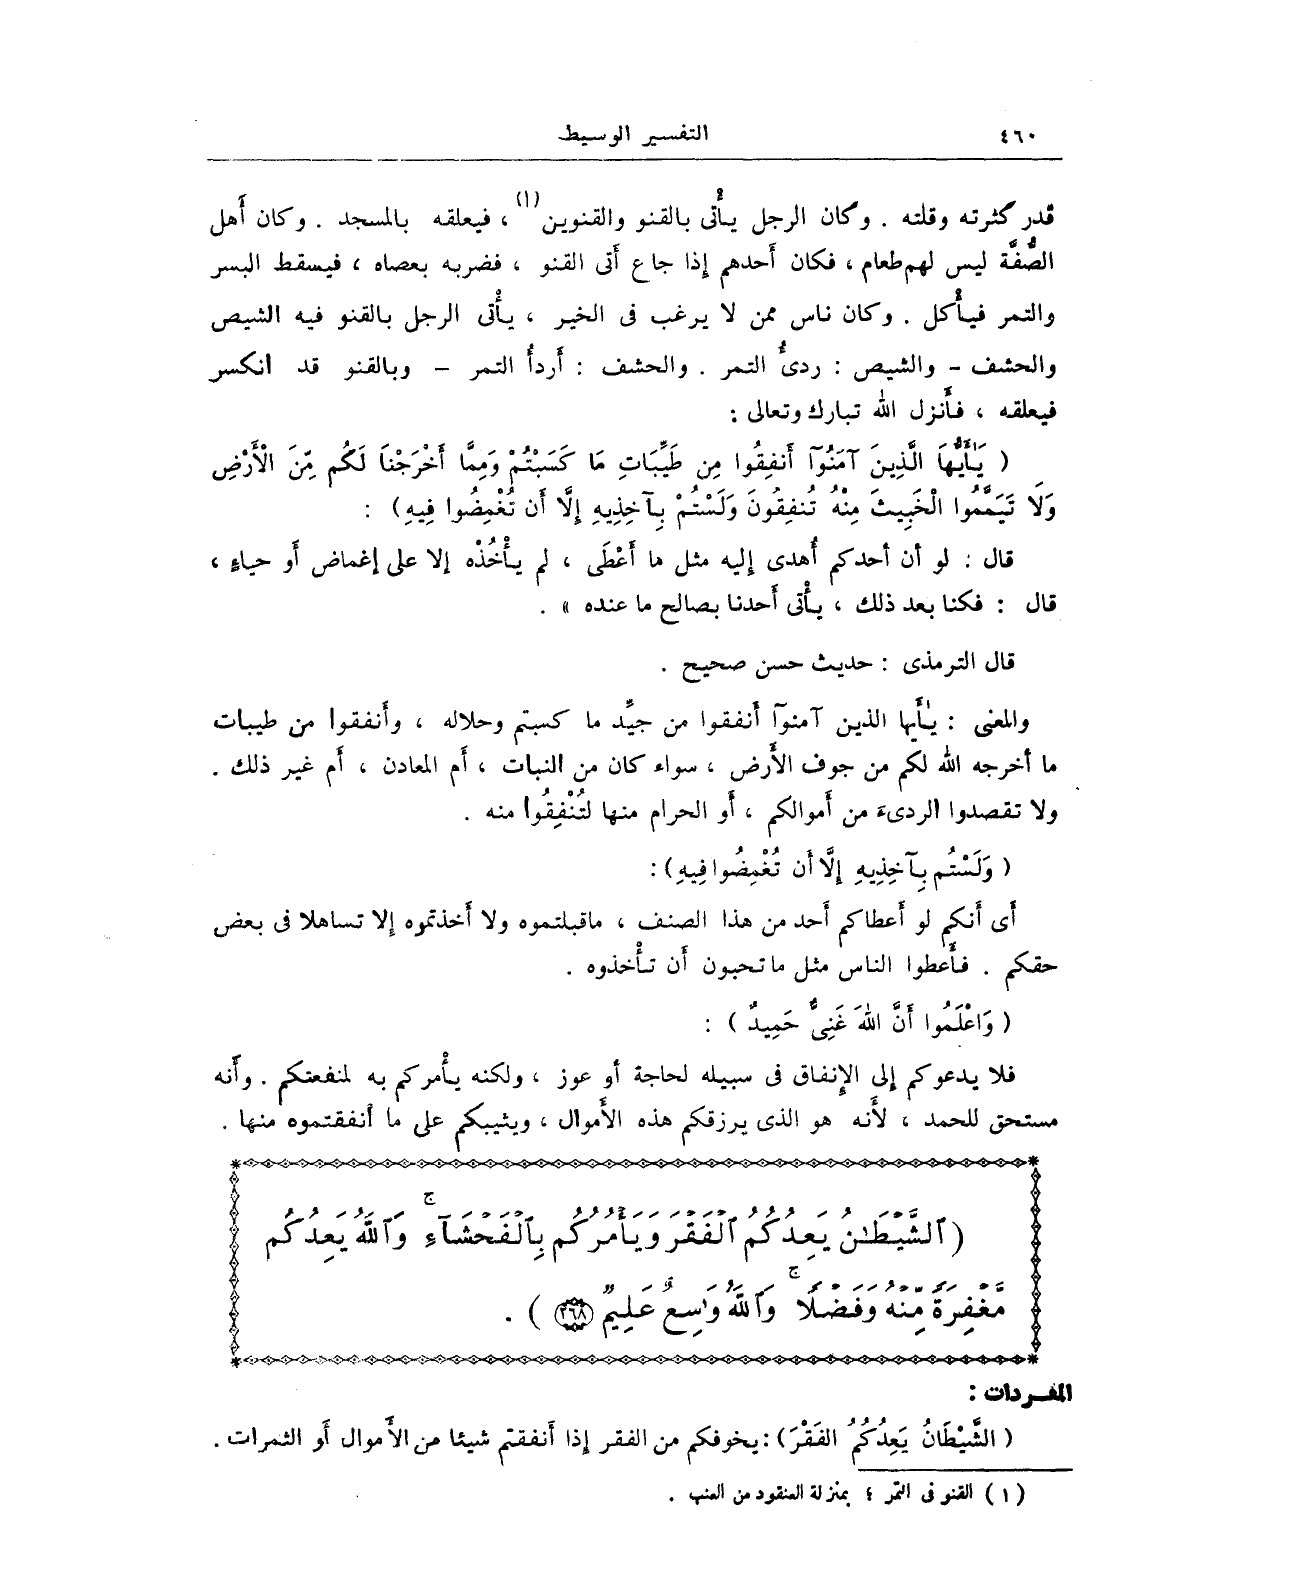 ٤٦٠ التفسير الوسيط
قدر كثرته وقلته . وكان الرجل يأْتى بالقنو والقنوين(١) ، فيعلقه بالمسجد . وكان أَهل
الصُّفَّة ليس لهم طعام ، فكان أَحدهم إذا جاع أَتى القنو ، فضربه بعصاه ، فيسقط البسر
والتمر فيأْكل . وكان ناس ممن لا يرغب فى الخير ، يأْتى الرجل بالقنو فيه الشيص
والحشف - والشيص : ردىُّ التمر . والحشف : أَردأُ التمر - وبالقنو قد انكسر
فيعلقه ، فأَنزل الله تبارك وتعالى :
( يَٰأَيُّهَا الَّذِينَ آمَنُوٓا أَنفِقُوا مِن طَيِّبَاتِ مَا كَسَبْتُمْ وَمِمَّا أَخْرَجْنَا لَكُم مِّنَ الْأَرْضِ
وَلَا تَيَمَّمُوا الْخَبِيثَ مِنْهُ تُنفِقُونَ وَلَسْتُمْ بِآخِذِيهِ إِلَّا أَن تُغْمِضُوا فِيهِ ) :
قال : لو أن أحدكم أُهدى إليه مثل ما أَعْطَى ، لم يأْخُذْه إلا على إغماض أَو حياءٍ ،
قال : فكنا بعد ذلك ، يأْتى أَحدنا بصالح ما عنده » .
قال الترمذى : حديث حسن صحيح .
والمعنى : يٰأَيها الذين آمنوٓا أَنفقوا من جيِّد ما كسبتم وحلاله ، وأَنفقوا من طيبات
ما أخرجه الله لكم من جوف الأَرض ، سواء كان من النبات ، أَم المعادن ، أَم غير ذلك .
ولا تقصدوا الردىءَ من أَموالكم ، أَو الحرام منها لتُنْفِقُوا منه .
( وَلَسْتُم بِآخِذِيهِ إِلَّا أَن تُغْمِضُوا فِيهِ ) :
أَى أَنكم لو أَعطاكم أَحد من هذا الصنف ، ماقبلتموه ولا أَخذتموه إلا تساهلا فى بعض
حقكم . فأَعطوا الناس مثل ما تحبون أَن تأْخذوه .
( وَاعْلَمُوا أَنَّ اللهَ غَنِىٌّ حَمِيدٌ ) :
فلا يدعوكم إلى الإنفاق فى سبيله لحاجة أو عوز ، ولكنه يأْمركم به لمنفعتكم . وأَنه
مستحق للحمد ، لأَنه هو الذى يرزقكم هذه الأَموال ، ويثيبكم على ما أنفقتموه منها .
( ٱلشَّيْطَٰنُ يَعِدُكُمُ ٱلْفَقْرَ وَيَأْمُرُكُم بِٱلْفَحْشَآءِ ۖ وَٱللَّهُ يَعِدُكُم
مَّغْفِرَةً مِّنْهُ وَفَضْلًا ۗ وَٱللَّهُ وَٰسِعٌ عَلِيمٌ ٢٦٨ ) .
المفردات :
( الشَّيْطَانُ يَعِدُكُمُ الفَقْرَ ) : يخوفكم من الفقر إذا أَنفقتم شيئا من الأَموال أَو الثمرات .
( ١ ) القنو فى التمر ؛ بمنزلة العنقود من العنب .